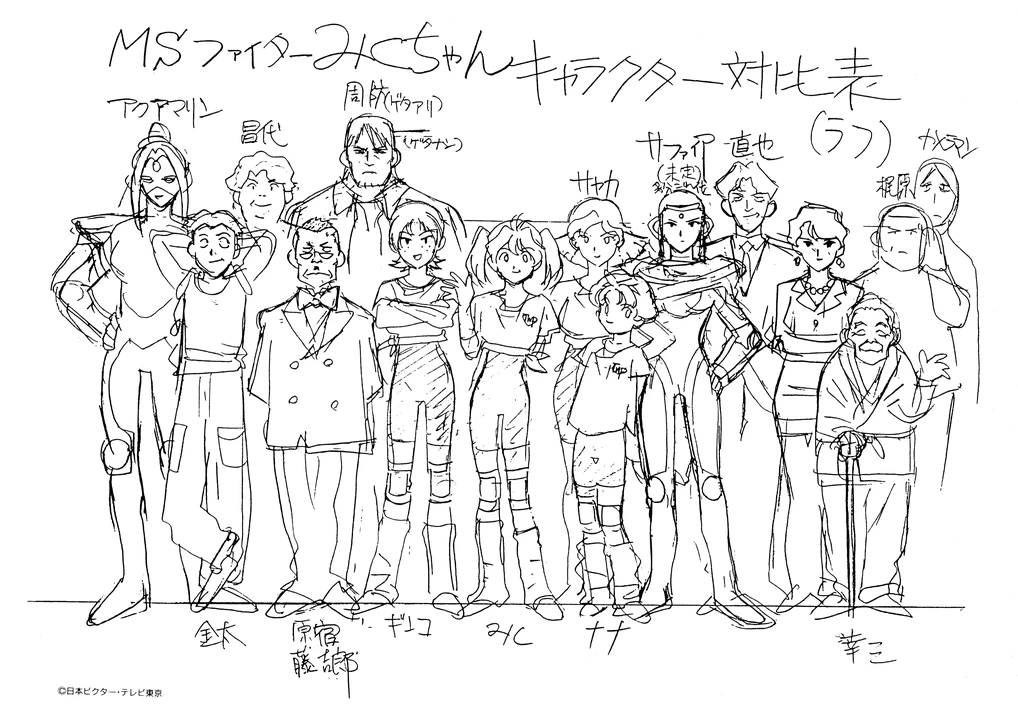 MSファイターみくちゃんキャラクター対比表
(ラフ)
アクアマリン
昌代
周防(ゲタアリ)
(ゲタナシ)
サヤカ
サファイア
(未定)
直也
梶原
カメラマン
TMP
TMP
金太
原宿
藤吉郎
ギンコ
みく
ナナ
幸三
©日本ビクター・テレビ東京